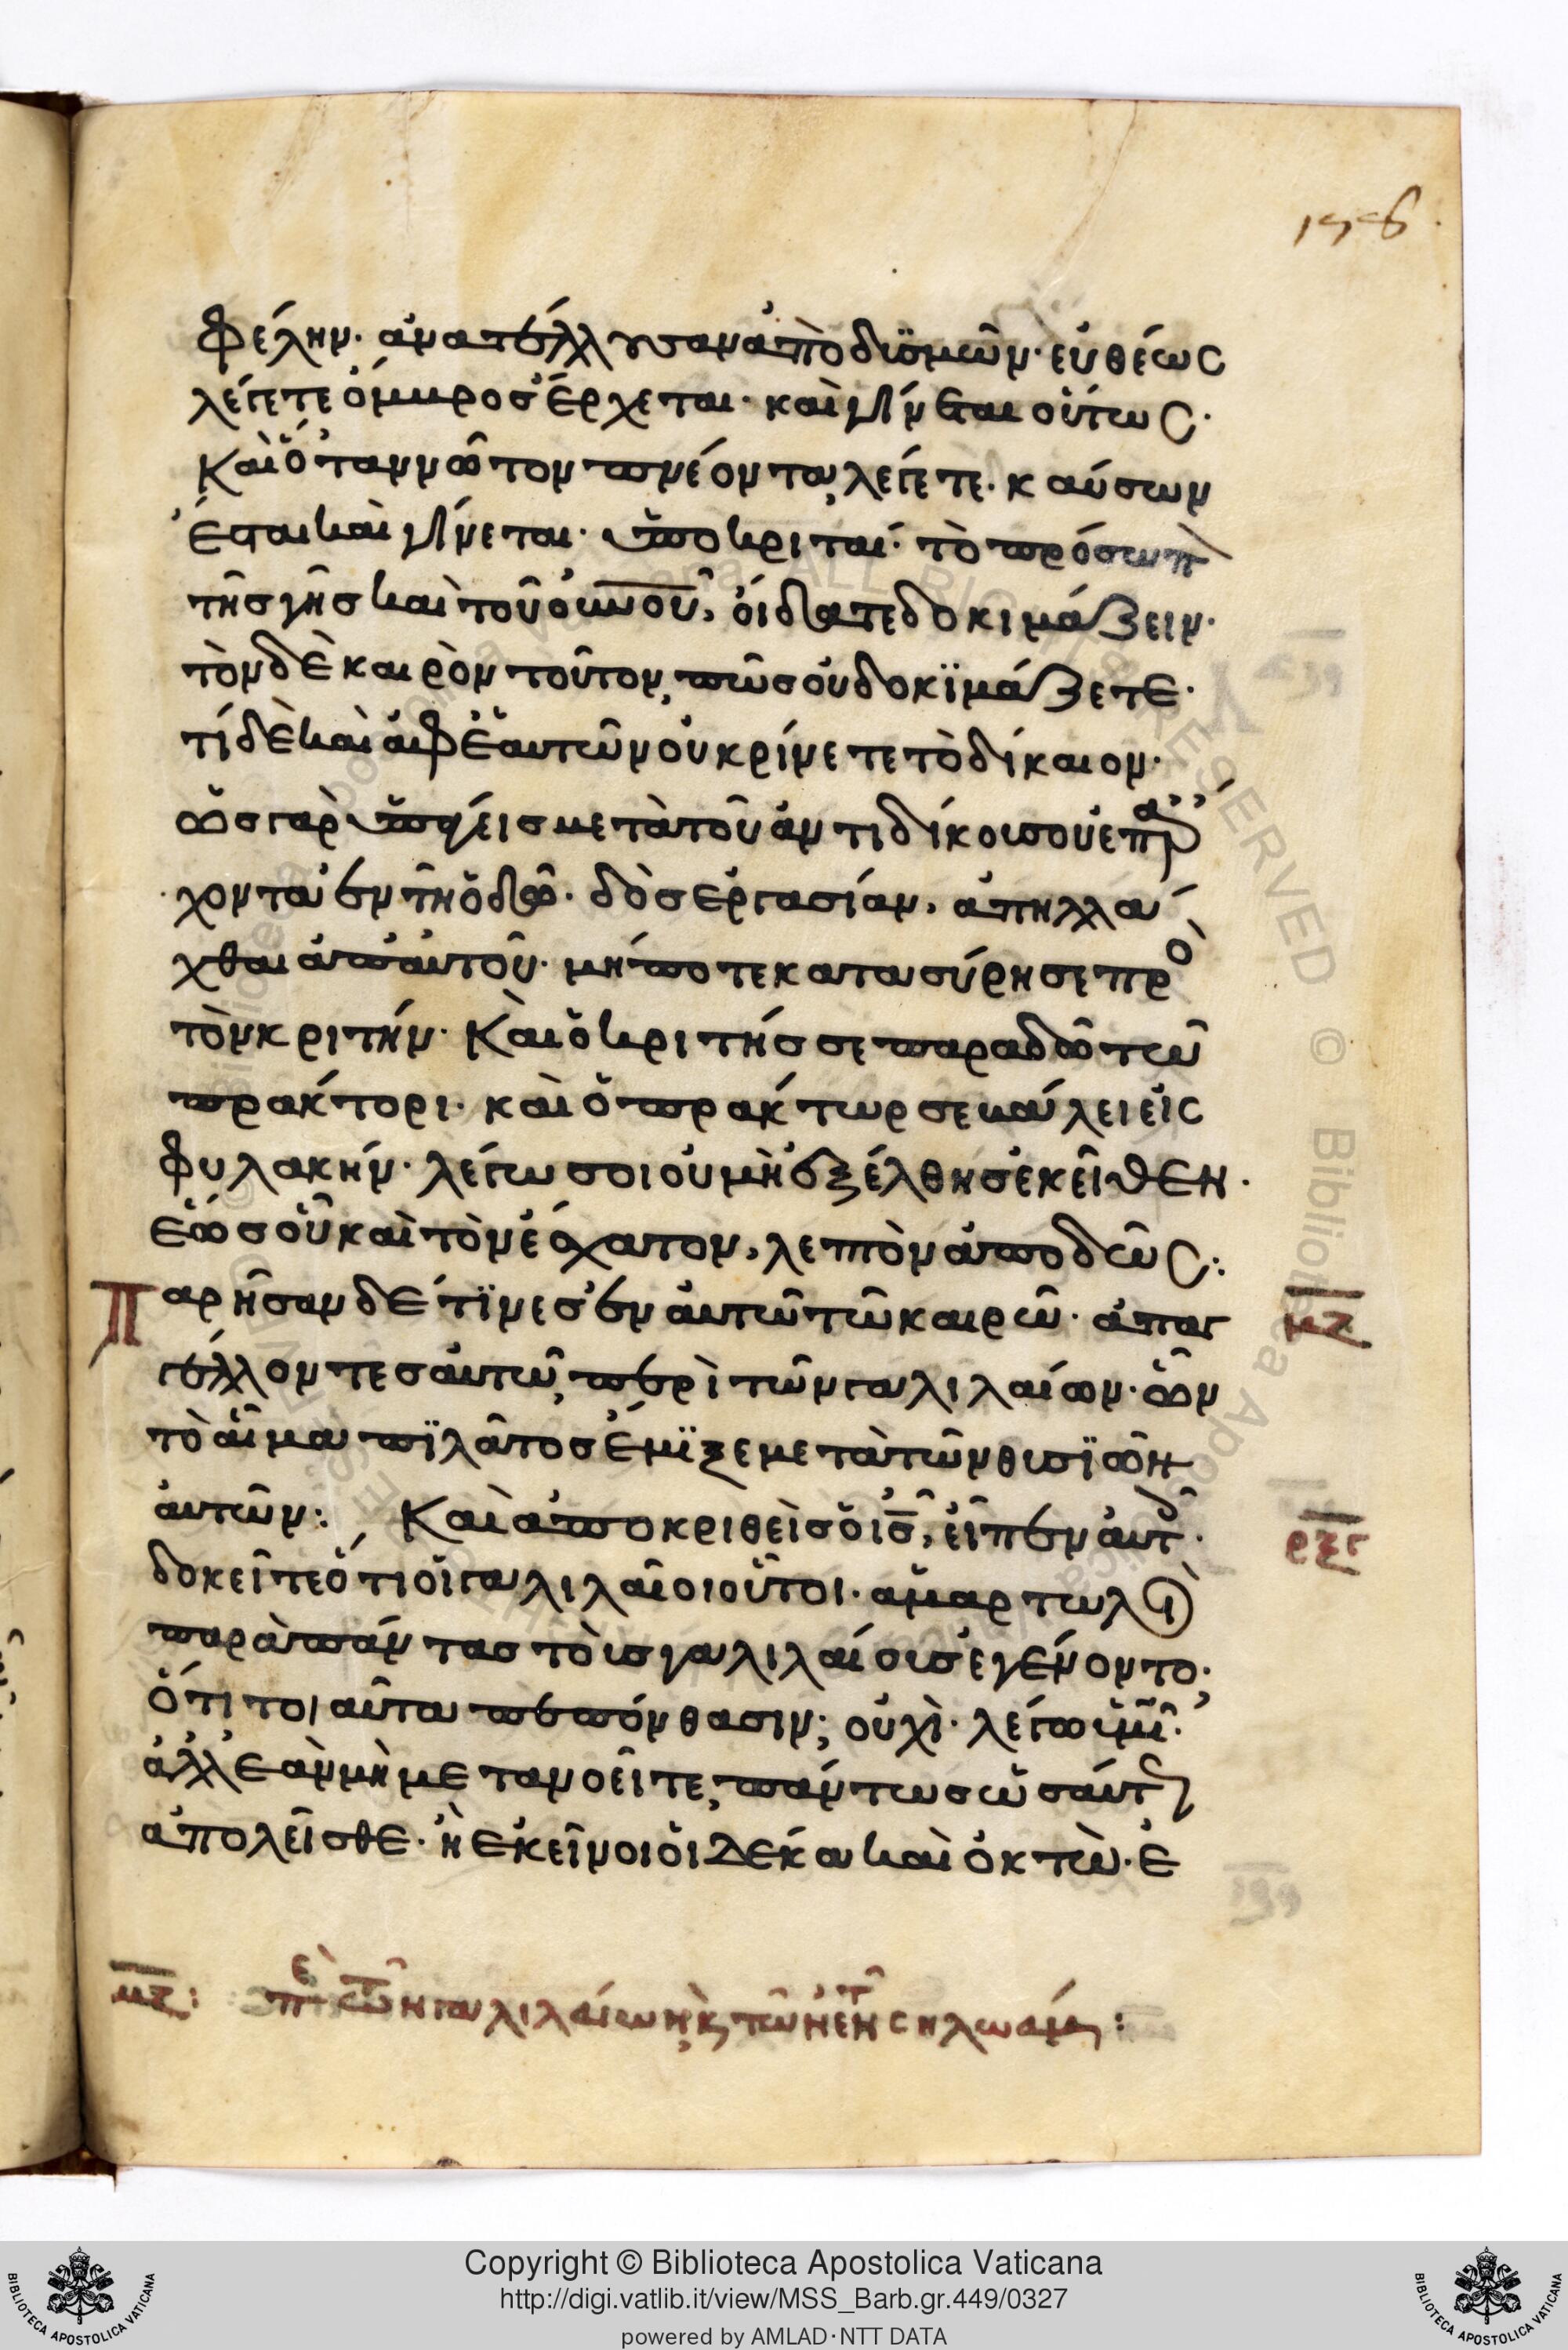 156.
φέλην· ἀνατέλλουσαν ἀπὸ δϊσμῶν· εὐθέως
λέγετε ὄμβρος ἔρχεται· καὶ γίνεται οὕτως·
Καὶ ὅταν νῶτον πνέοντα, λέγετε· καύσων
ἔσται καὶ γίνεται· ὑποκριταί· τὸ πρόσωπ
τῆς γῆς καὶ τοῦ οὐνοῦ, οἴδατε δοκιμάζειν·
τὸν δὲ καιρὸν τοῦτον, πῶς οὐ δοκϊμάζετε·
τί δὲ καὶ ἀφ ἑαυτῶν οὐ κρίνετε τὸ δίκαιον·
ὡς γὰρ ὑπάγεις μετὰ τοῦ ἀντιδίκου σου ἐπ ἄρ
χοντα ἐν τῆ ὁδῶ· δὸς ἐργασίαν, ἀπηλλά
χθαι ἀπ αὐτοῦ· μήποτε κατασύρη σε πρὸ
τὸν κριτήν· Καὶ ὁ κριτής σε παραδῶ τῶ
πράκτορι· καὶ ὁ πράκτωρ σε βάλει εἰς
φυλακήν· λέγω σοι οὐ μὴ ἐξέλθης ἐκεῖθεν·
ἕως οὗ καὶ τὸν ἔσχατον, λεπτὸν ἀποδῶς:
Παρῆσαν δέ τϊνες ἐν αὐτῶ τῶ καιρῶ· ἀπαγ
γέλλοντες αὐτῶ, περὶ τῶν γαλιλαίων· ὧν
τὸ αἷμα πϊλάτος ἔμϊξε μετὰ τῶν θυσϊῶν
αὐτῶν: Καὶ ἀποκριθεὶς ὁ ις, εἶπεν αὐτ·
δοκεῖτε ὅτι οἱ γαλιλαῖοι οὗτοι· ἁμαρτωλοὶ
παρὰ πάντας τοὺς γαλιλαίους ἐγένοντο·
ὅτι τοιαῦτα πεπόνθασιν; οὐχὶ· λέγω ὑμῖ·
ἀλλ ἐὰν μὴ μετανοεῖτε, πάντως ὡσαύτ
ἀπολεῖσθε· ἢ ἐκεῖνοι οἱ δέκα καὶ ὀκτὼ· ἐ
μζ
ρξγ
μζ: πε τῶν γαλιλαίων, κ τῶν ἐν τ σηλωάμ:
Copyright © Biblioteca Apostolica Vaticana
http://digi.vatlib.it/view/MSS_Barb.gr.449/0327
powered by AMLAD·NTT DATA
BIBLIOTECA APOSTOLICA VATICANA
BIBLIOTECA APOSTOLICA VATICANA